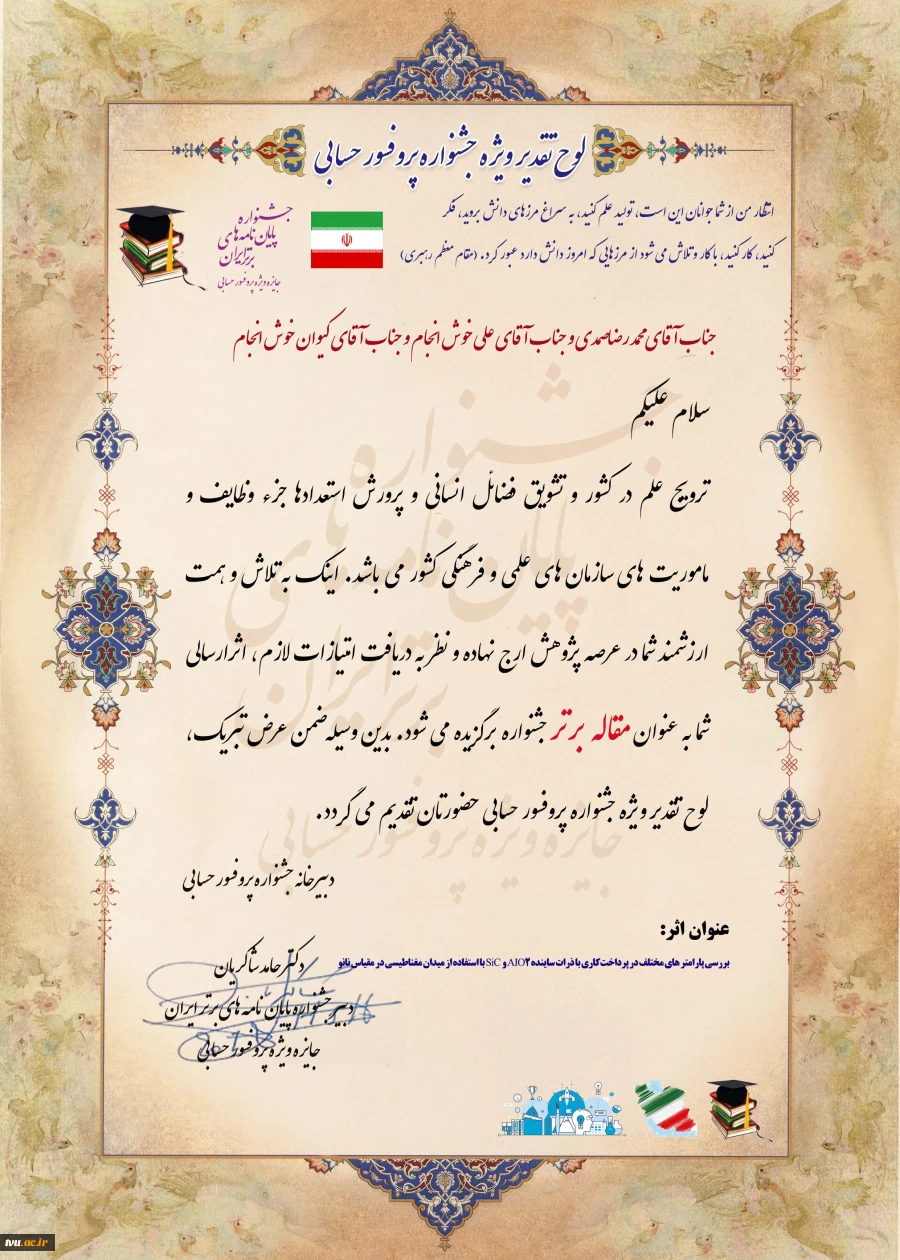 لوح تقدیر ویژه جشنواره پروفسور حسابی
انتظار من از شما جوانان این است، تولید علم کنید، به سراغ مرزهای دانش بروید، فکر
کنید، کار کنید، با کار و تلاش می شود از مرزهایی که امروز دانش دارد عبور کرد. (مقام معظم رهبری)
جشنواره
پایان نامه های
برتر ایران
جایزه ویژه پروفسور حسابی
جناب آقای محمدرضا صمدی و جناب آقای علی خوش انجام و جناب آقای کیوان خوش انجام
سلام علیکم
ترویج علم در کشور و تشویق فضائل انسانی و پرورش استعدادها جزء وظایف و
ماموریت های سازمان های علمی و فرهنگی کشور می باشد. اینک به تلاش و همت
ارزشمند شما در عرصه پژوهش ارج نهاده و نظر به دریافت امتیازات لازم، اثر ارسالی
شما به عنوان مقاله برتر جشنواره برگزیده می شود. بدین وسیله ضمن عرض تبریک،
لوح تقدیر ویژه جشنواره پروفسور حسابی حضورتان تقدیم می گردد.
جشنواره
پایان نامه های
برتر ایران
جایزه ویژه پروفسور حسابی
دبیرخانه جشنواره پروفسور حسابی
عنوان اثر:
بررسی پارامترهای مختلف در پرداخت کاری با ذرات ساینده AlO2 و SiC با استفاده از میدان مغناطیسی در مقیاس نانو
دکتر حامد شاکریان
دبیر جشنواره پایان نامه های برتر ایران
جایزه ویژه پروفسور حسابی
tvu.ac.ir